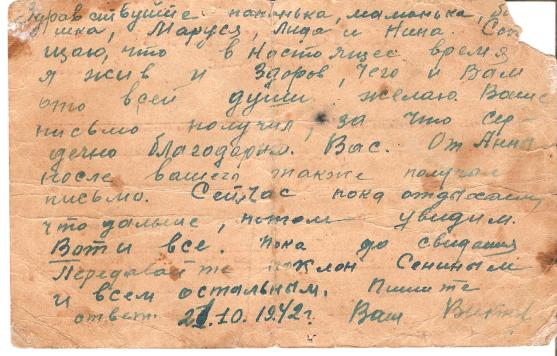 Здравствуйте папанька, маманька,
Маруся, Лида и Нина.
щаю, что в настоящее время
я жив и здоров, чего и Вам
ото всей души желаю. Ваше
письмо получил, за что сер
дечно благодарю Вас. От Анны
после вашего также получал
письмо. Сейчас пока отдыхаем
что дальше, потом увидим.
Вот и все. Пока до свидания
Передавайте поклон Сениным
и всем остальным. Пишите
ответ. 10.1942г. Ваш